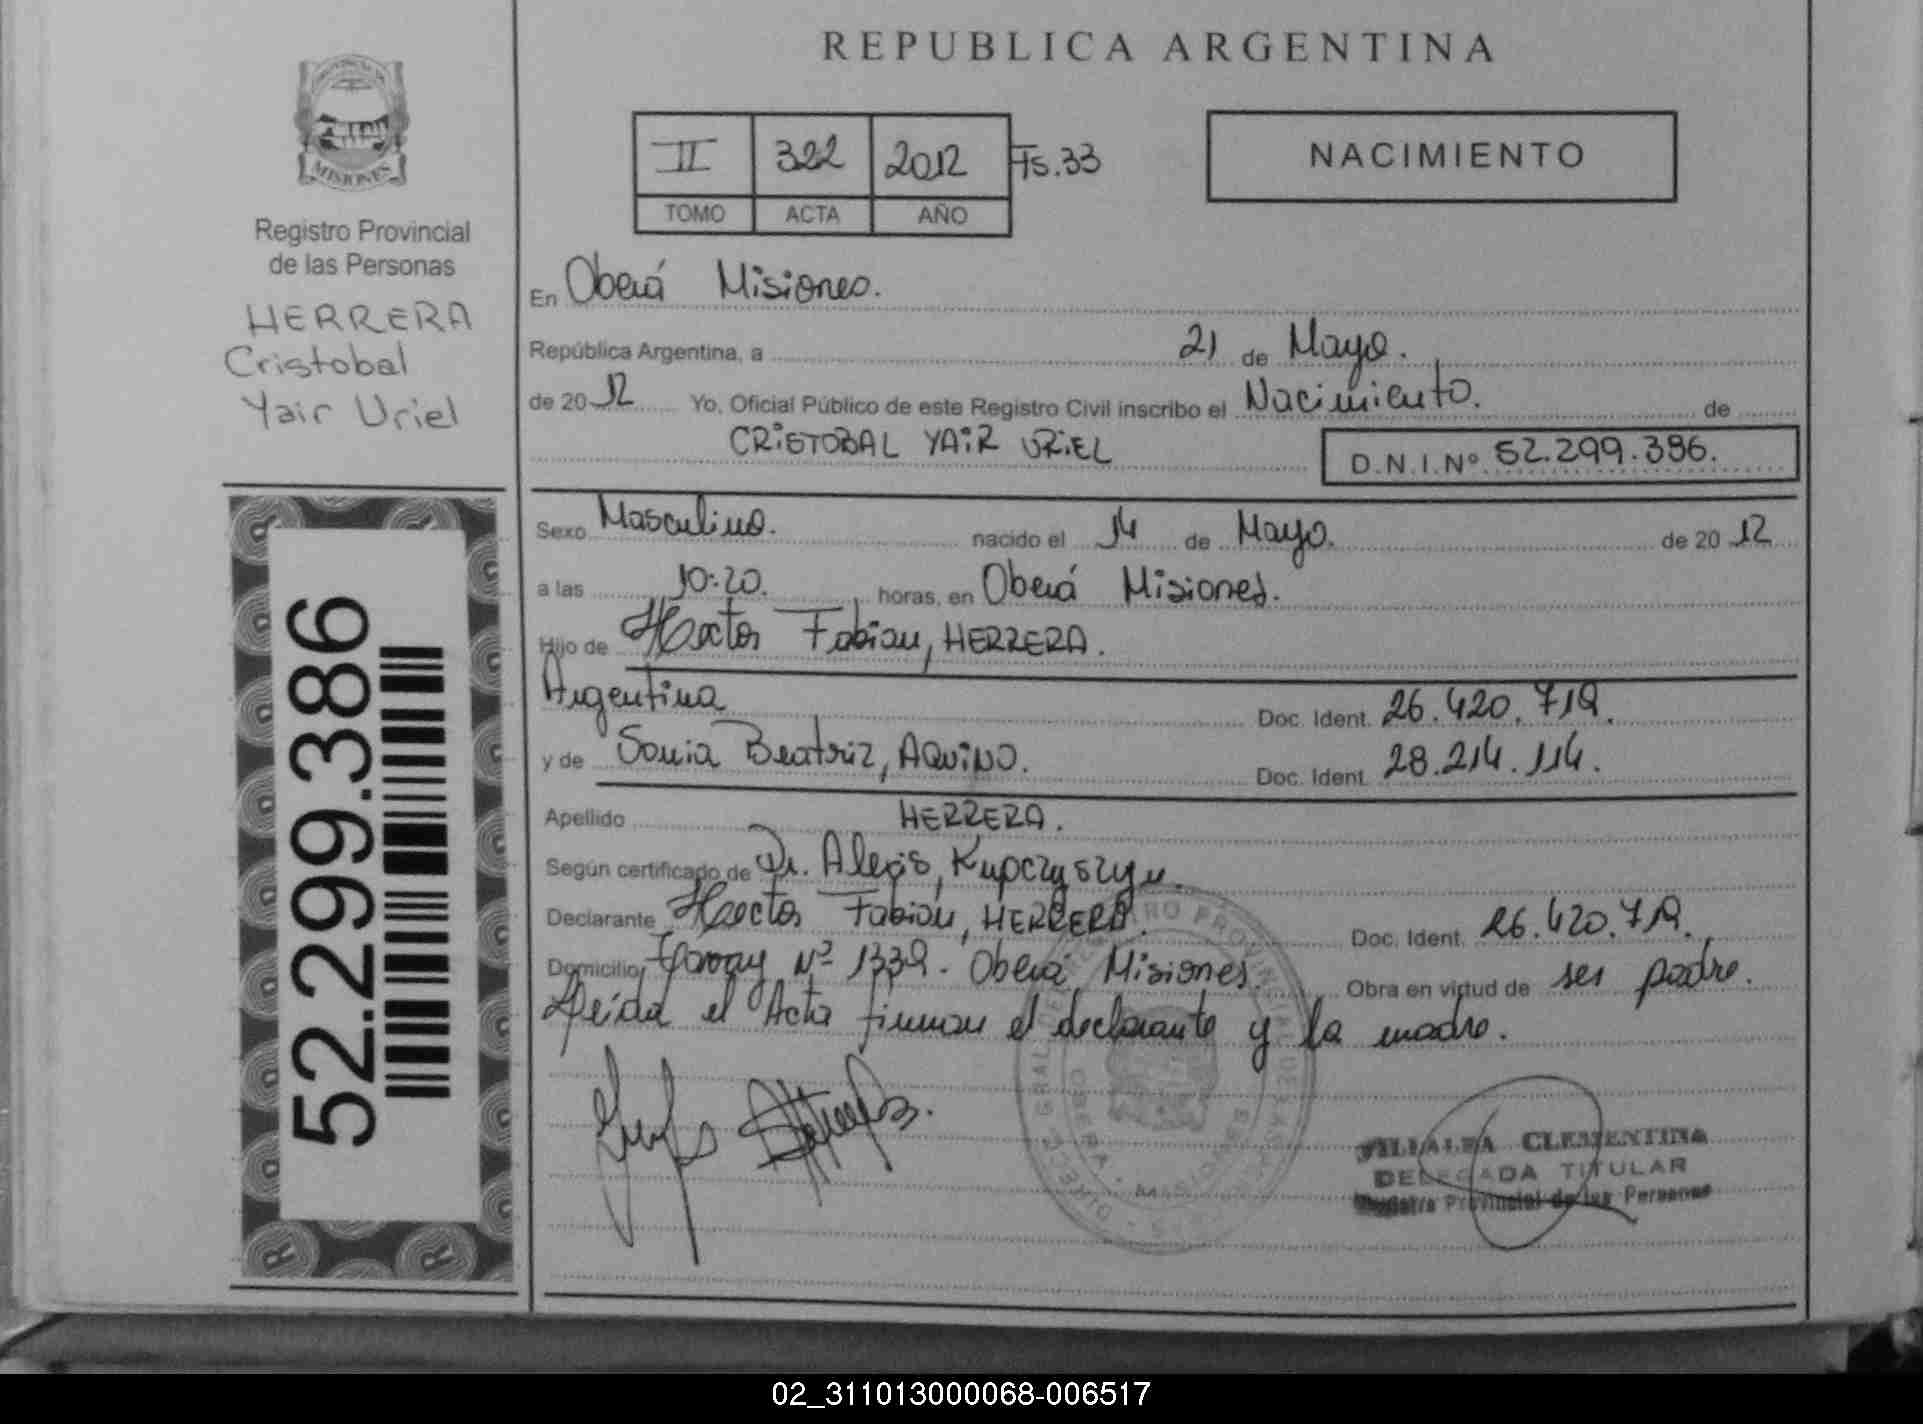 REPUBLICA ARGENTINA
II 322 2012 Fs.33
TOMO ACTA AÑO
NACIMIENTO
MISIONES
Registro Provincial
de las Personas
HERRERA
Cristobal
Yair Uriel
52.299.386
En Oberá Misiones.
República Argentina, a 21 de Mayo.
de 2012 Yo, Oficial Público de este Registro Civil inscribo el Nacimiento. de
CRISTOBAL YAIR URIEL D.N.I.Nº 52.299.386.
Sexo Masculino. nacido el 14 de Mayo. de 2012
a las 10:20. horas, en Oberá Misiones.
Hijo de Hector Fabian, HERRERA.
Argentina Doc. Ident. 26.420.719.
y de Sonia Beatriz, AQUINO. Doc. Ident. 28.214.114.
Apellido HERRERA.
Según certificado de Dr. Alexis, Kupczyszyn.
Declarante Hector Fabian, HERRERA. Doc. Ident. 26.420.719.
Domicilio Nº 1339. Oberá Misiones. Obra en virtud de ser padre.
Leída el Acta firman el declarante y la madre.
OBERA - MISIONES
VILLALBA CLEMENTINA
DELEGADA TITULAR
Registro Provincial de las Personas
02_311013000068-006517